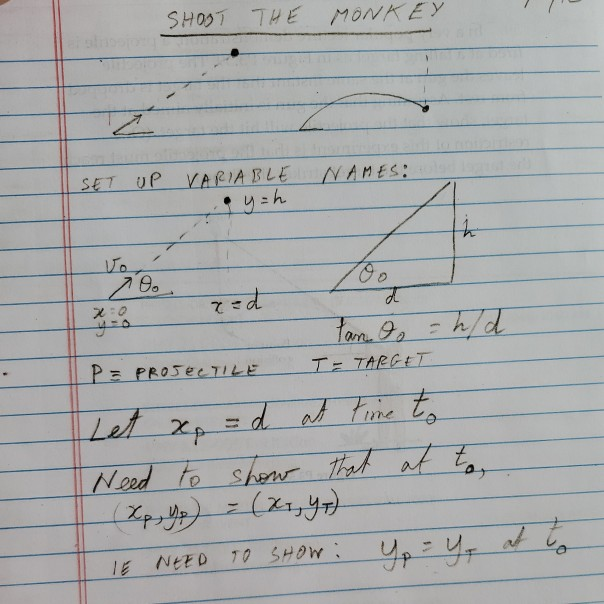 SHOOT THE MONKEY
SET UP VARIABLE NAMES:
y = h
h
v₀
θ₀
θ₀
x = 0
y = 0
x = d
d
tan θ₀ = h/d
P ≡ PROJECTILE T ≡ TARGET
Let xₚ = d at time t₀
Need to show that at t₀,
(xₚ, yₚ) = (x_T, y_T)
IE NEED TO SHOW: yₚ = y_T at t₀